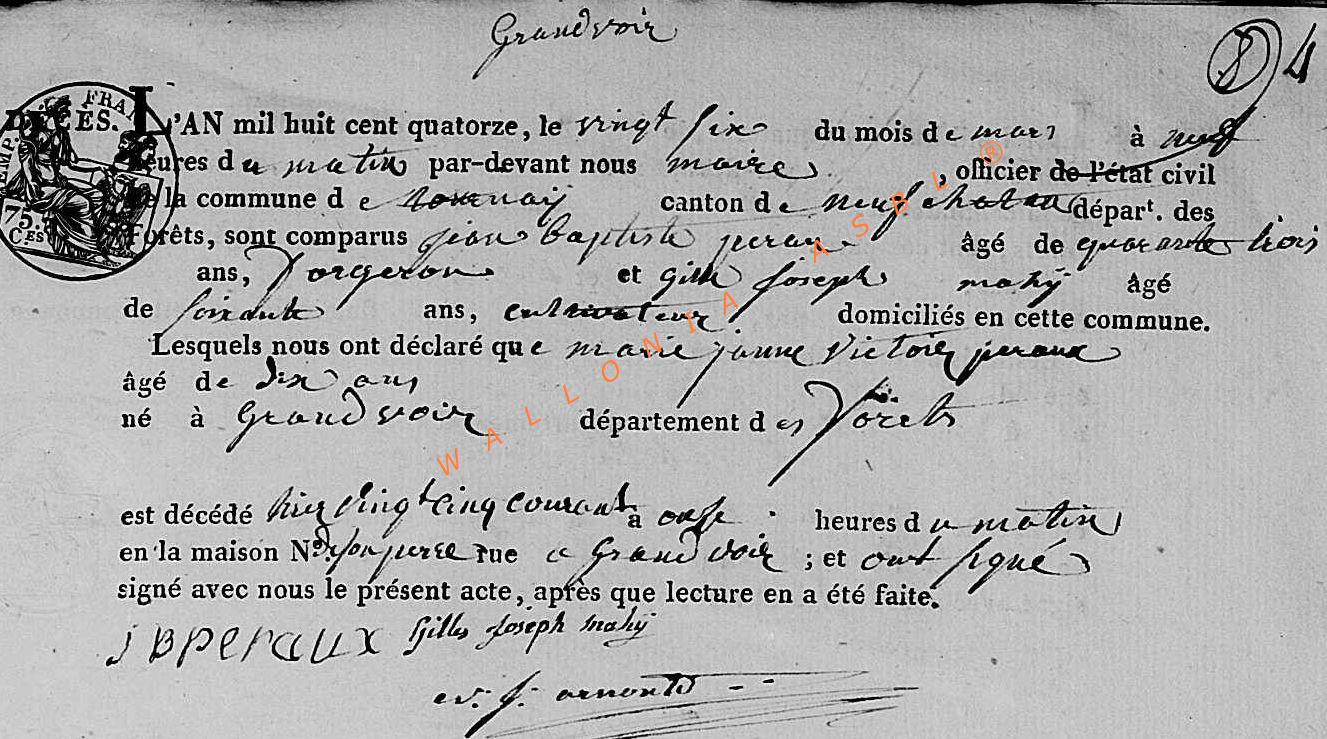 Grandvoir
8 4
DÉCÈS. L'AN mil huit cent quatorze, le vingt six du mois de mars à neuf
heures du matin par-devant nous maire, officier de l'état civil
de la commune de tournaÿ canton de neufchateau départ. des
Forêts, sont comparus jean baptiste peraux âgé de quarante trois
ans, forgeron et gille joseph mahÿ âgé
de soixante ans, cultivateur domiciliés en cette commune.
Lesquels nous ont déclaré que marie jeanne victoire peraux
âgé de dix ans
né à Grandvoir département des forets
est décédé hier vingt cinq courant à onse heures du matin
en la maison No. de son pere rue a Grandvoir ; et ont signé
signé avec nous le présent acte, après que lecture en a été faite.
J B PERAUX Gilles Joseph Mahÿ
arnould
FRA
75.
CES
WALLONIA ASBL ®